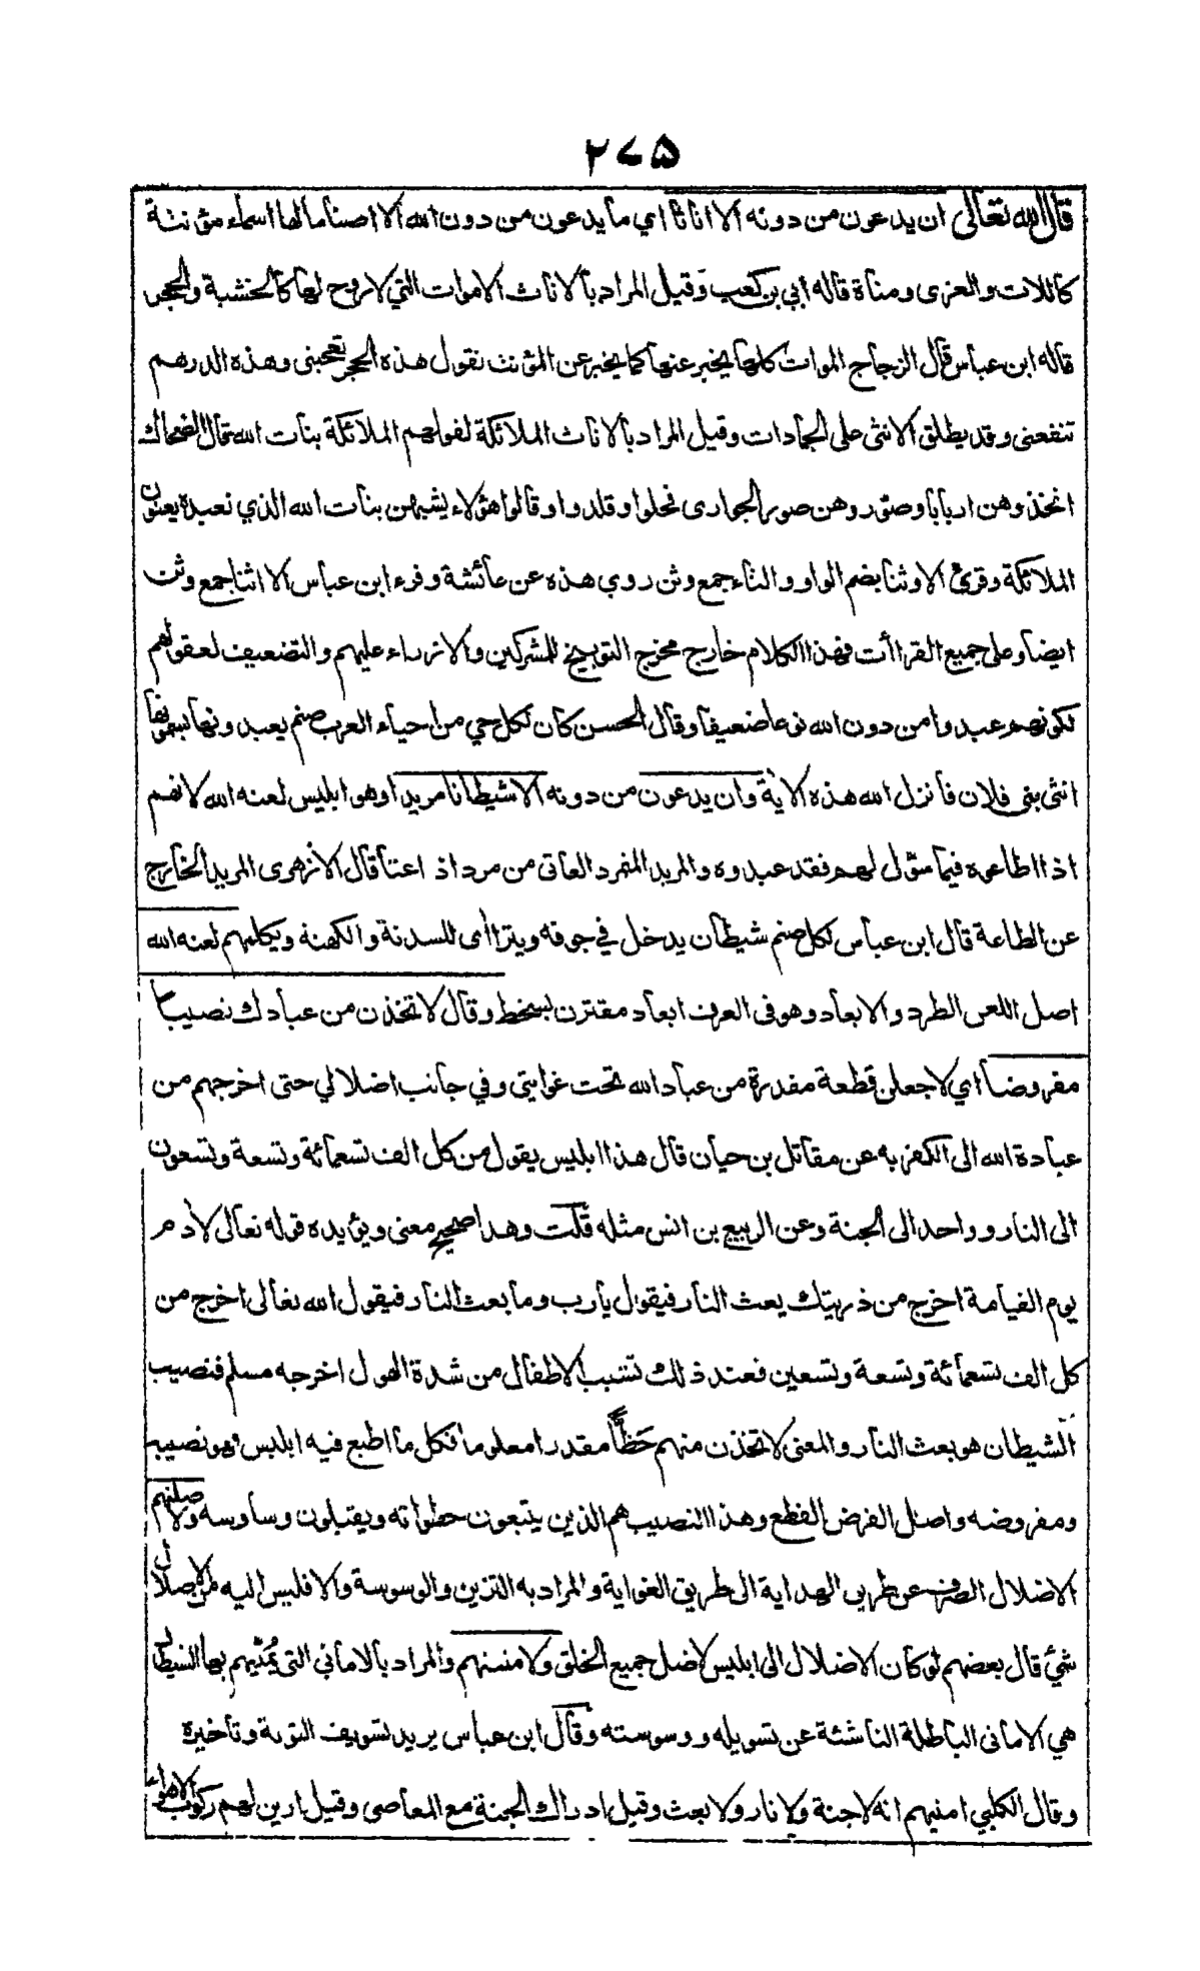 ۲۷۵
قال الله تعالى ان يدعون من دونه الا اناثا اي ما يدعون من دون الله الا اصناما لها اسماء مؤنثة
كاللات والعزى ومناة قاله ابي بن كعب وقيل المراد بالاناث الاموات التي لا روح لها كالخشبة والحجر
قاله ابن عباس قال الزجاج الموات كلها يخبر عنها كما يخبر عن المؤنث نقول هذه الحجر تعجبنى وهذه الدرهم
تنفعنى وقد يطلق الانثى على الجمادات وقيل المراد بالاناث الملائكة لقولهم الملائكة بنات الله قال الضحاك
اتخذوهن اربابا وصوروهن صور الجوارى فحلوا وقلدوا وقالوا هؤلاء يشبهن بنات الله الذي نعبده يعنون
الملائكة وقرئ الا وثنا بضم الواو والثاء جمع وثن روي هذه عن عائشة وقرء ابن عباس الا اثنا جمع وثن
ايضا وعلى جميع القراأت فهذا الكلام خارج مخرج التوبيخ للمشركين والازراء عليهم والتضعيف لعقولهم
لكونهم عبدوا من دون الله نوعا ضعيفا وقال الحسن كان لكل حي من احياء العرب صنم يعبدونها يسمونها
انثى بنى فلان فانزل الله هذه الاية وان يدعون من دونه الا شيطانا مريدا وهو ابليس لعنه الله لانهم
اذا اطاعوه فيما سول لهم فقد عبدوه والمريد المتمرد العاتى من مرد اذا عتا قال الازهرى المريد الخارج
عن الطاعة قال ابن عباس لكل صنم شيطان يدخل في جوفه ويتراأى للسدنة والكهنة ويكلمهم لعنه الله
اصل اللعن الطرد والابعاد وهو فى العرف ابعاد مقترن بسخط وقال لاتخذن من عبادك نصيبا
مفروضا اي لاجعلن قطعة مقدرة من عباد الله تحت غوايتى وفي جانب اضلالي حتى اخرجهم من
عبادة الله الى الكفر به عن مقاتل بن حيان قال هذا ابليس يقول من كل الف تسعمائة وتسعة وتسعون
الى النار وواحد الى الجنة وعن الربيع بن انس مثله قلت وهذا صحيح معنى ويؤيده قوله تعالى لأدم
يوم القيامة اخرج من ذريتك بعث النار فيقول يارب وما بعث النار فيقول الله تعالى اخرج من
كل الف تسعمائة وتسعة وتسعين فعند ذلك تشيب الاطفال من شدة الهول اخرجه مسلم فنصيب
الشيطان هو بعث النار والمعنى لاتخذن منهم حظا مقدرا معلوما فكل ما اطيع فيه ابليس فهو نصيبه
ومفروضه واصل الفرض القطع وهذا النصيب هم الذين يتبعون خطواته ويقبلون وساوسه ولاضلنهم
الاضلال الصرف عن طريق الهداية الى طريق الغواية والمراد به التزين والوسوسة والا فليس اليه من الاضلال
شيئ قال بعضهم لو كان الاضلال الى ابليس لاضل جميع الخلق ولامنينهم والمراد بالامانى التى يمنيهم بها الشيطان
هي الامانى الباطلة الناشئة عن تسويله ووسوسته وقال ابن عباس يريد تسويف التوبة وتاخيره
وقال الكلبي امنيهم انه لا جنة ولا نار ولا بعث وقيل ادراك الجنة مع المعاصى وقيل ازين لهم ركوب الاهواء